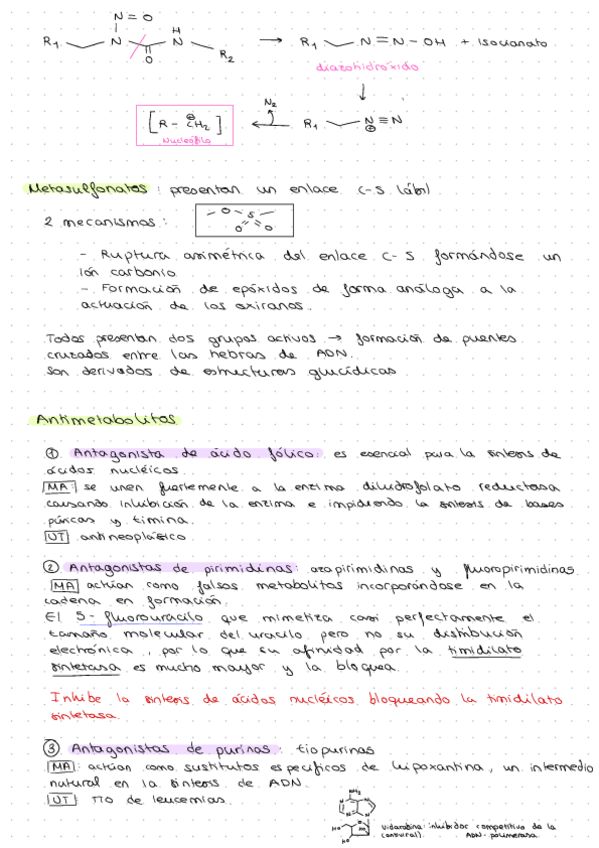 N = O
R1 N N H R2 O → R1 N = N - OH + Isocianato
diazohidróxido
N2
[R - CH2] R1 N ≡ N
Nucleófilo
Metasulfonatos: presentan un enlace C-S lábil
2 mecanismos: - O - S - O O
- Ruptura asimétrica del enlace C-S formándose un
ión carbonio
- Formación de epóxidos de forma análoga a la
actuación de los oxiranos.
Todos presentan dos grupos activos → formación de puentes
cruzados entre las hebras de ADN.
Son derivados de estructuras glucídicas
Antimetabolitos
① Antagonista de ácido fólico: es esencial para la síntesis de
ácidos nucléicos
MA: se unen fuertemente a la enzima dihidrofolato reductasa
causando inhibición de la enzima e impidiendo la síntesis de bases
púricas y timina.
UT antineoplásico
② Antagonistas de pirimidinas: azapirimidinas y fluoropirimidinas
MA actúan como falsos metabolitos incorporándose en la
cadena en formación.
El 5-fluorouracilo que mimetiza casi perfectamente el
tamaño molecular del uracilo pero no su distribución
electrónica, por lo que su afinidad por la timidilato
sintetasa es mucho mayor y la bloquea.
Inhibe la síntesis de ácidos nucléicos bloqueando la timidilato
sintetasa.
③ Antagonistas de purinas: tiopurinas
MA: actúan como sustitutos específicos de hipoxantina, un intermedio
natural en la síntesis de ADN.
UT: TTO de leucemias.
NH2
N N N N
HO O HO
Vidarabina: inhibidor competitivo de la
(antiviral). ADN-polimerasa